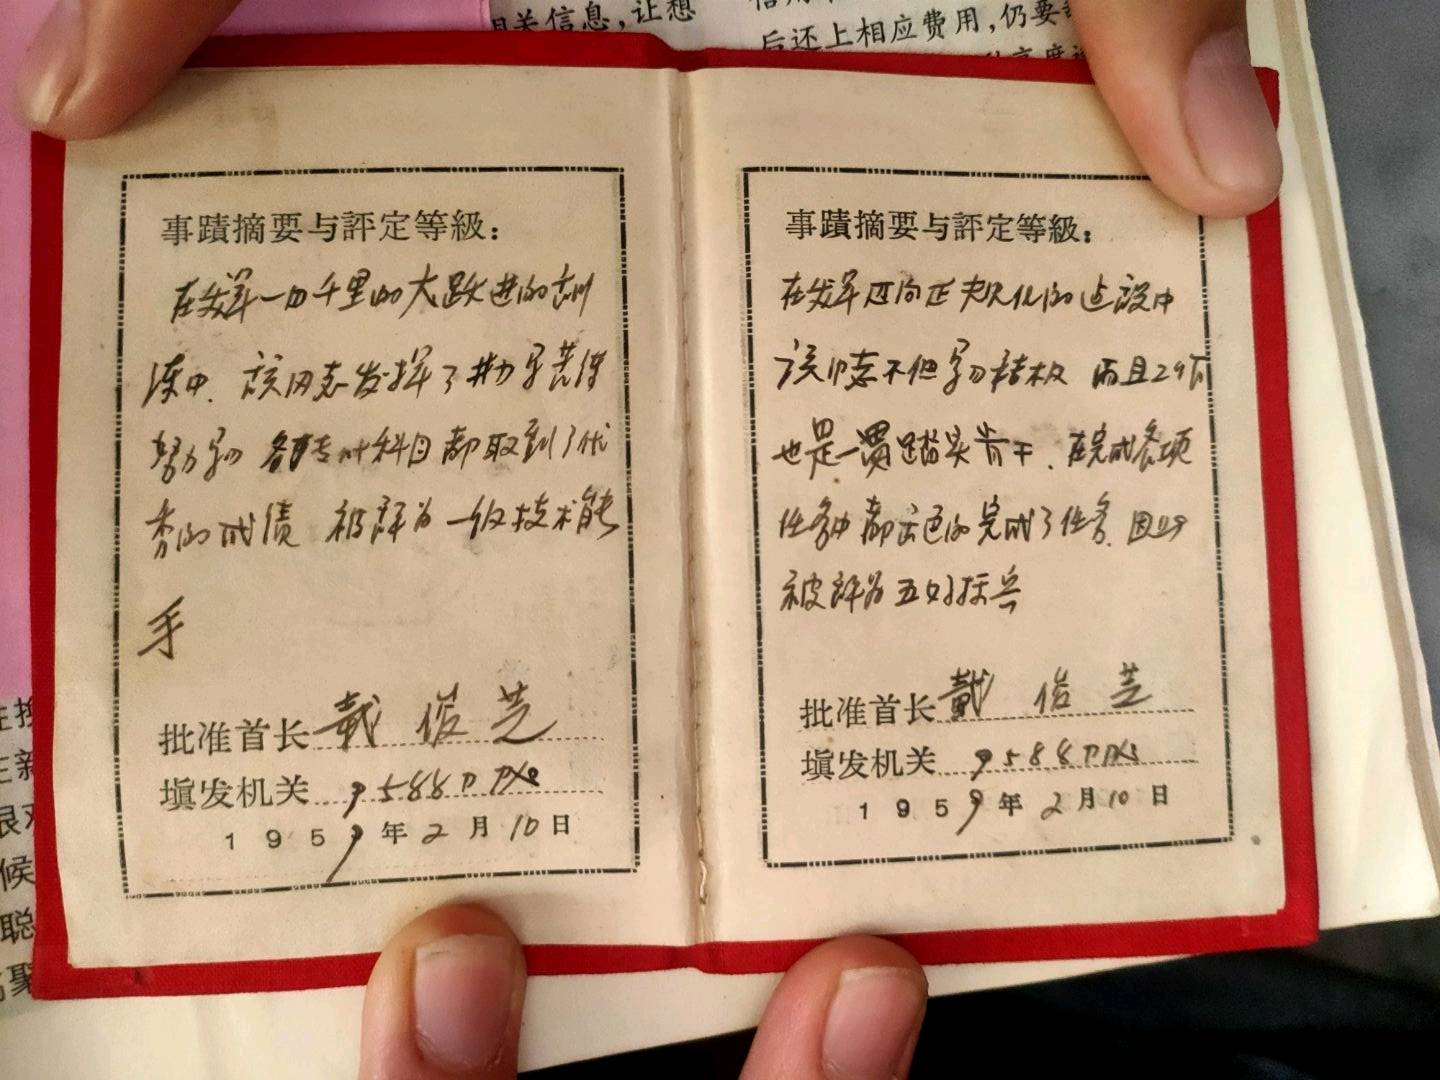 相关信息，让想
后还上相应费用，仍要
事蹟摘要与評定等級：
在我军一日千里的大跃进的训
练中，该同志发挥了勤学苦练
努力学习 各专业科目都取到了优
秀的成绩 被评为一级技术能
手
批准首长 戴俊芝
填发机关 9588部队
1959年2月10日
事蹟摘要与評定等級：
在我军迈向正规化的建设中
该同志不但学习积极 而且
也是一贯踏实肯干，在完成各项
任务中都出色的完成了任务，因此
被评为五好标兵
批准首长 戴俊芝
填发机关 9588部队
1959年2月10日
候
聪